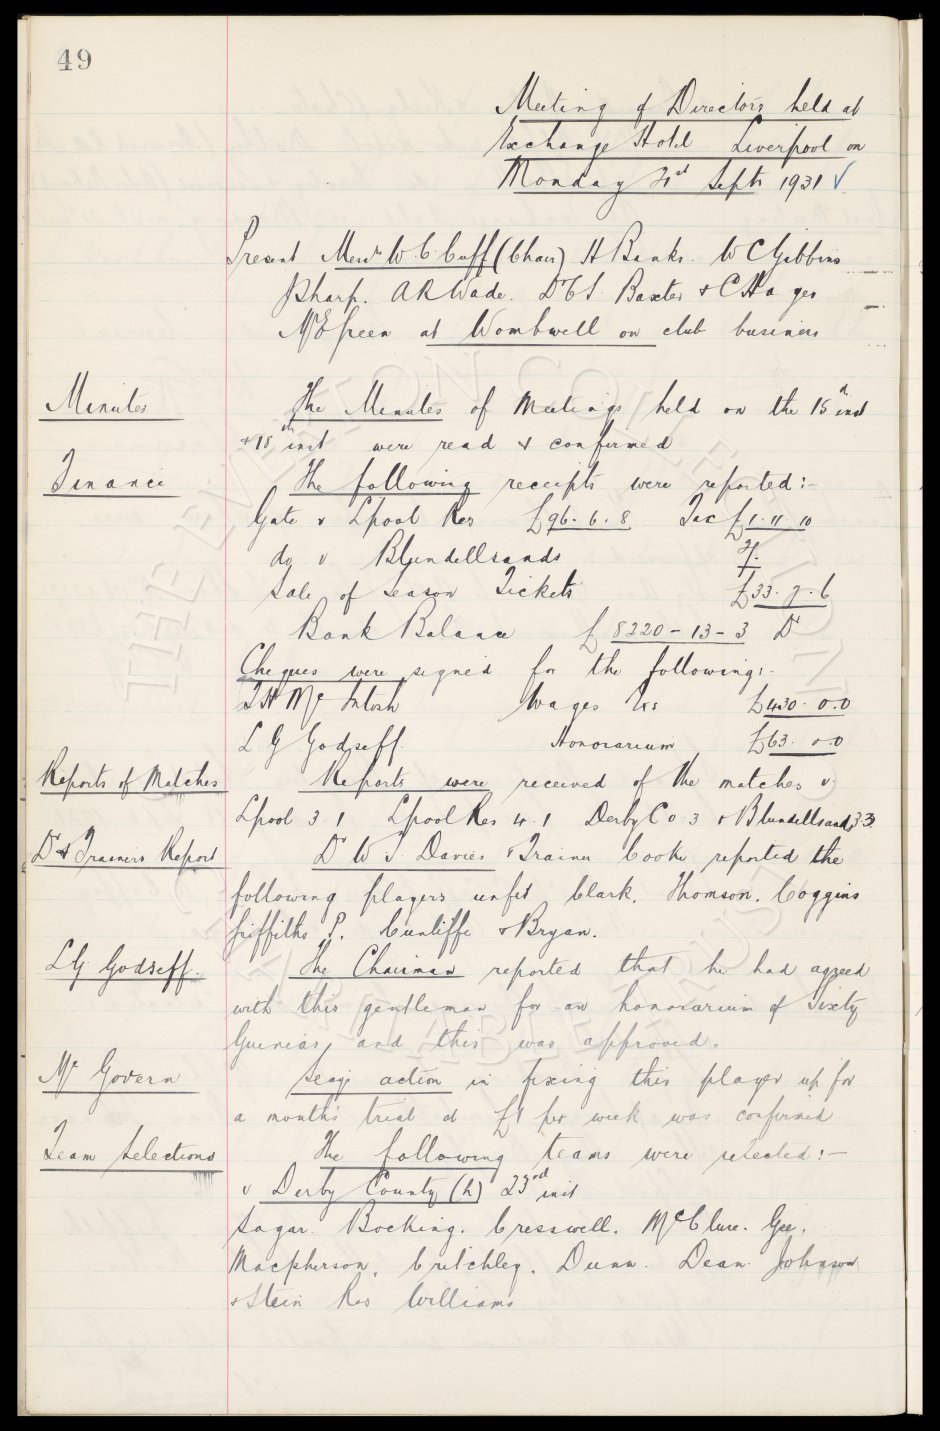 49
Meeting of Directors held at
Exchange Hotel Liverpool on
Monday 21st Septr 1931
Present Messrs W.C. Cuff (Chair) H Banks. W C Gibbins
J Sharp. A R Wade. Dr C S. Baxter &
Mr E Green at Wombwell on club business
Minutes
The Minutes of Meetings held on the 15th inst
& 18th inst were read & confirmed
Finance
The following receipts were reported:-
Gate v Lpool Res £96. 6. 8 Tax £1. 11 10
do v Blundellsands
Sale of Season Tickets £33. 7. 6
Bank Balance £8220-13-3 Dr
Cheques were signed for the following:-
T H McIntosh Wages £430. 0.0
L. G Godseff. Honorarium £63. 0.0
Reports of Matches
Reports were received of the matches v.
Lpool 3.1 Lpool Res 4.1 Derby Co 3 & Blundellsands 3.3
Dr & Trainers Report
Dr W J. Davies & Trainer Cooke reported the
following players unfit Clark, Thomson. Coggins
Griffiths P. Cunliffe & Bryan.
L G Godseff.
The Chairman reported that he had agreed
with this gentleman for an honorarium of Sixty
Guineas, and this was approved.
Mc Govern
Secys action in fixing this player up for
a month's trial at £1 per week was confirmed
Team Selections
The following teams were selected:-
v Derby County (h) 23rd inst
Sagar. Bocking. Cresswell. McClure. Gee,
Macpherson, Critchley. Dunn. Dean. Johnson
& Stein Res Williams
THE EVERTON COLLECTION
CHARITABLE TRUST